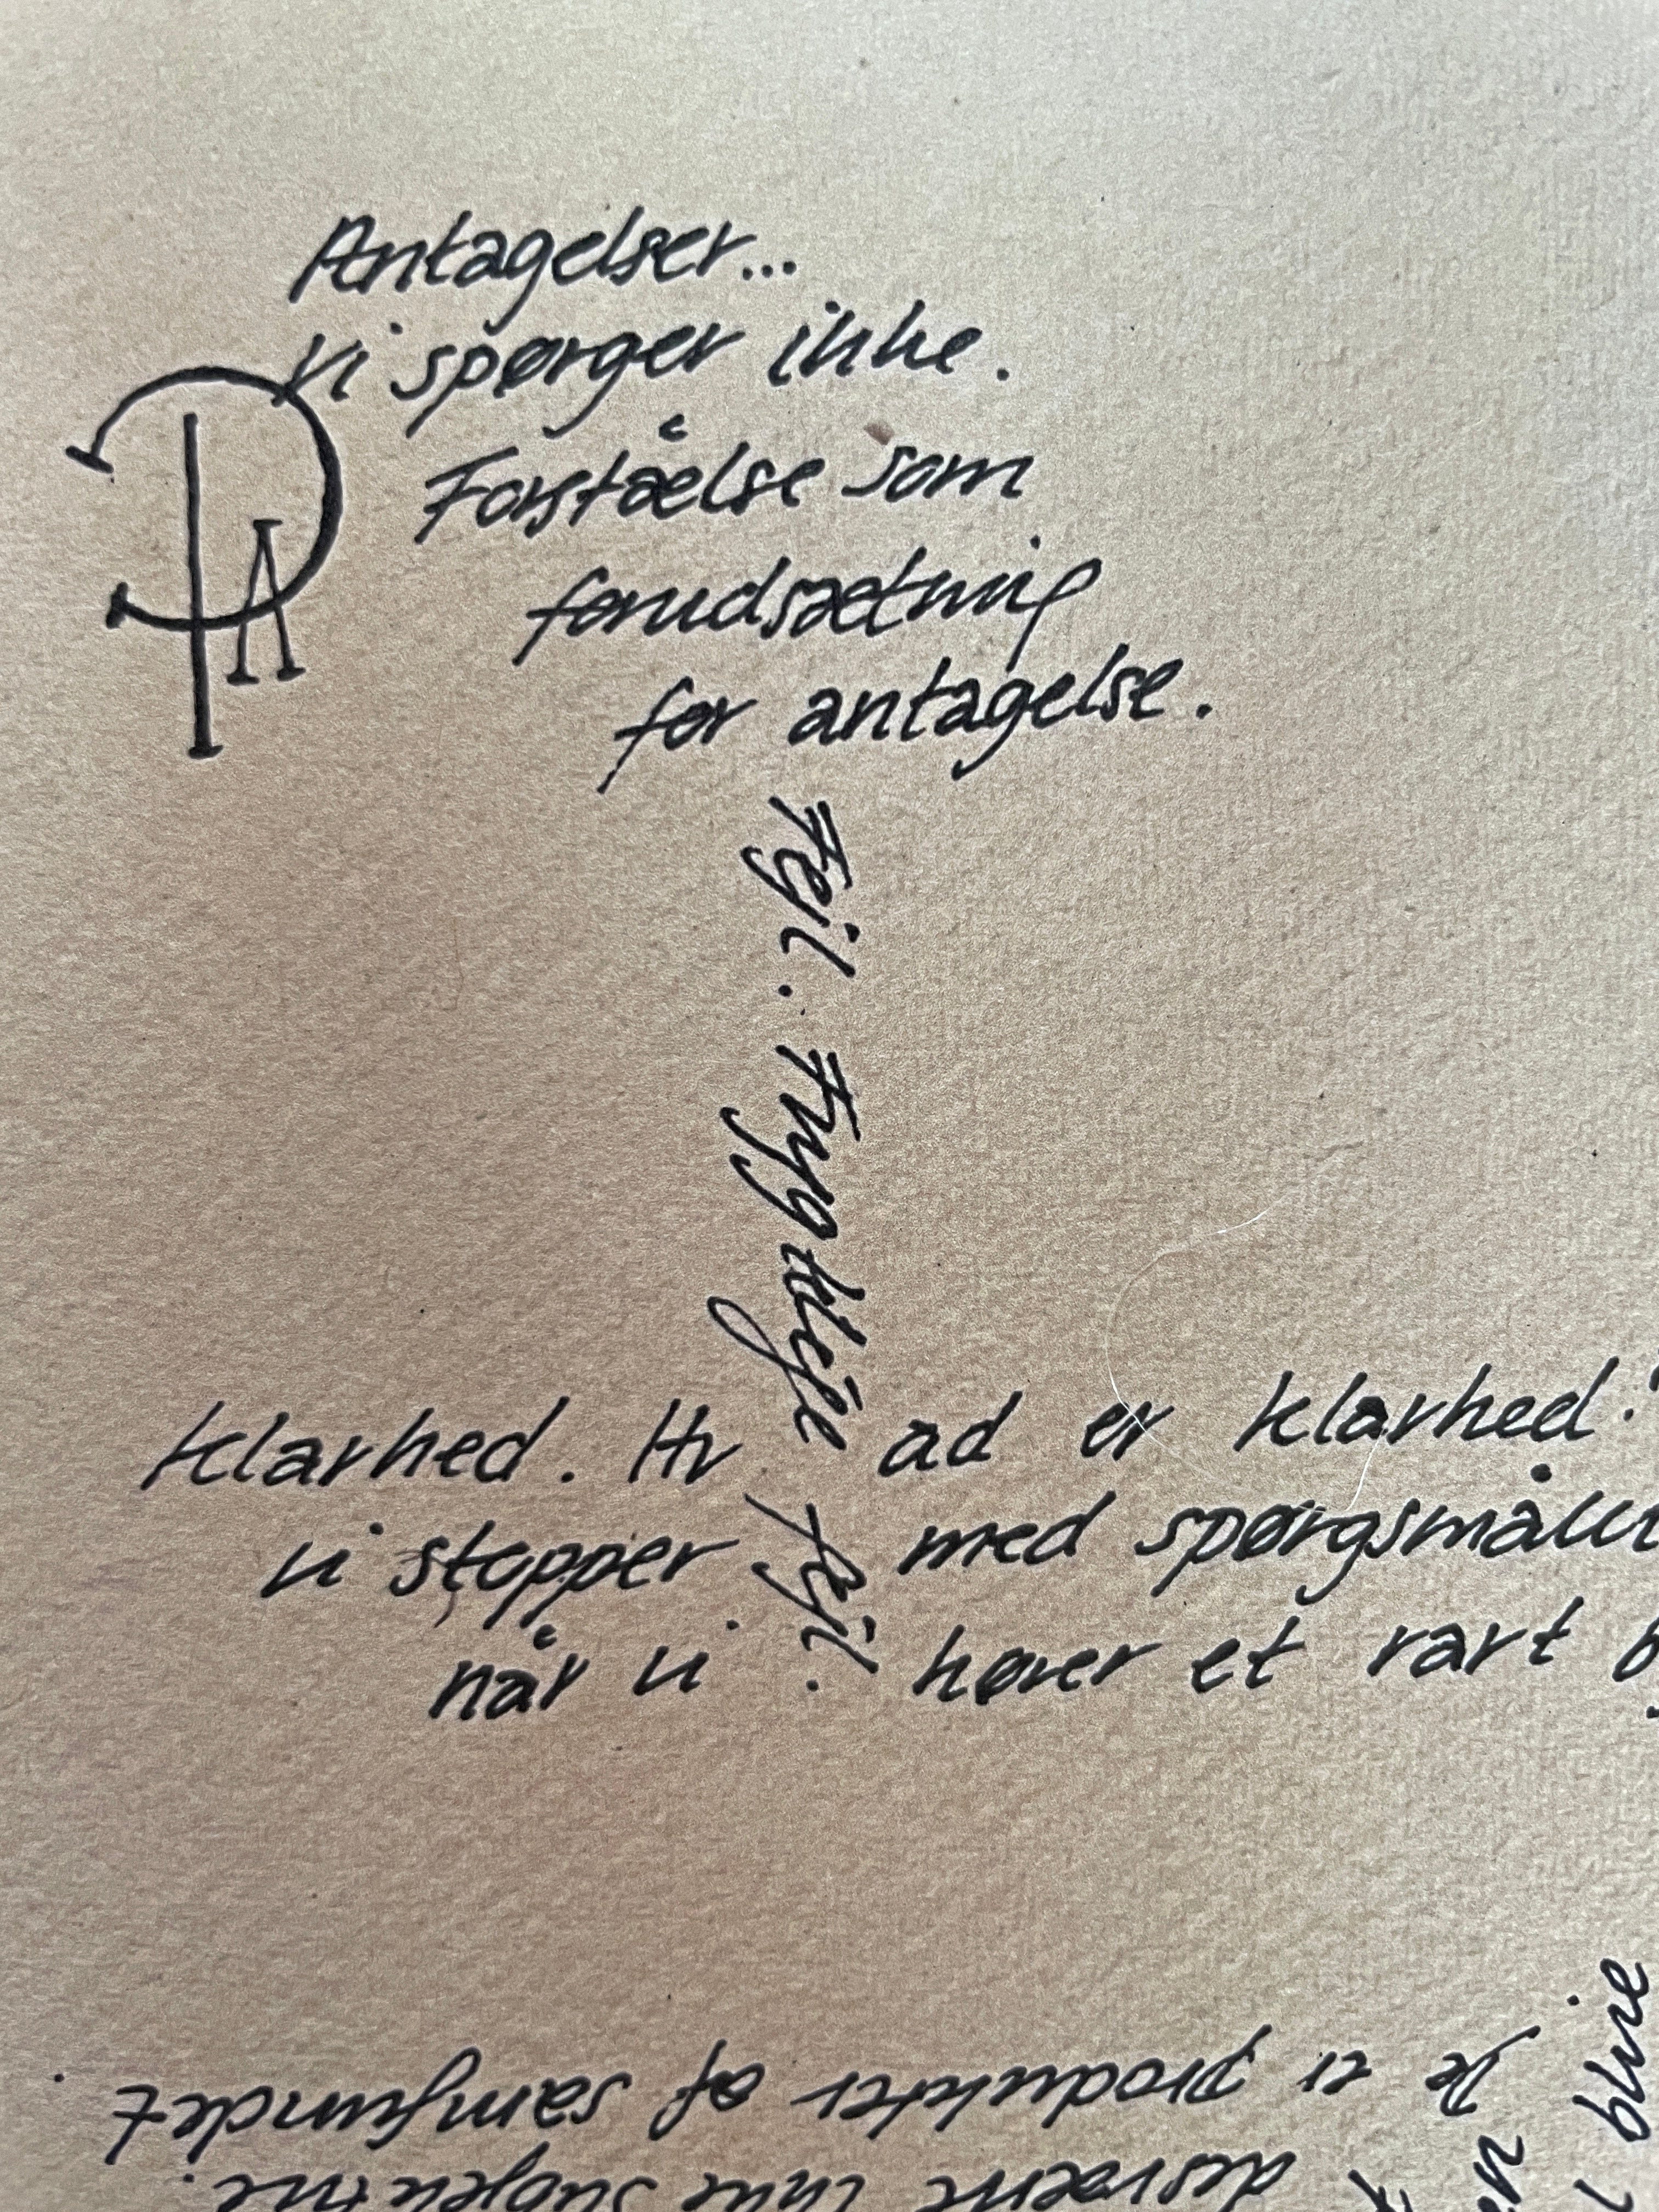 Antagelser...
vi spørger ikke.
Forståelse som
forudsætning
for antagelse.
PA
Fejl. Frygtelige fejl.
Klarhed. Hvad er klarhed?
vi stopper med spørgsmålet
når vi hører et rart
De er produkter af samfundet
blive